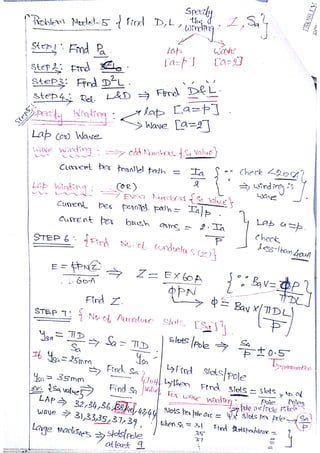 Problem Model-5 {Find D, L, Specify the winding, Z, Sa}
Step1: Find Pa
Lap [a=p] wave [a=2]
Step2: Find C₀
Step3: Find D²L
Step4: Rel. L&D ⇒ Find D&L.
Specify Winding: → Lap [a=p]
→ Wave [a=2]
Lap (or) Wave
Wave Winding: ⇒ odd Numbers {Sa value}
Current per parallel path = Ia/2 {∵ check <200A ⇒ winding is wave}
(OR)
Lap Winding: ⇒ Even Numbers {Sa value}
Current per parallel path = Ia/p.
Current per brush arms = 2·Ia/p
Lap a=p.
check less-than 400A
STEP 6: {Find No. of Conductors (Z)}
E = ϕPNZ/60A ⇒ Z = E×60A/ϕPN {∵ Bav = ϕP/πDL}
Find Z. ϕ = Bav × (πDL/P)
STEP 7: {No. of Armature Slots [Sa]}
ysa = πD/Sa ⇒ Sa = πD/ysa
If ysa = 25mm ⇒ Find Sa
ysa = 35mm ⇒ Find Sa
{Sa values}
LAP → 32, 34, 36, 38, 40, 42, 44
wave → 31, 33, 35, 37, 39.
Large machines → slots/pole atleast 9
Slots/Pole ⇒ Sa/P ± 0.5
Find Slots/Pole
Find Slots/Pole = Slots/Pole × No. of Poles
For wave winding:
Slots per pole arc = ψ × Slots per pole (Sa/P)
When Sa = 31 Find Slots/polearc =
35
37